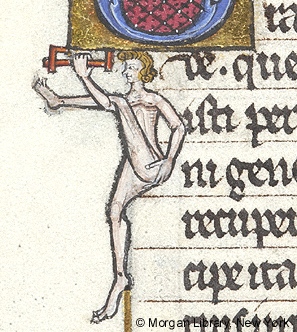 ra
de. que
isti per
ni gene
recuper
cipe ita
© Morgan Library, New York